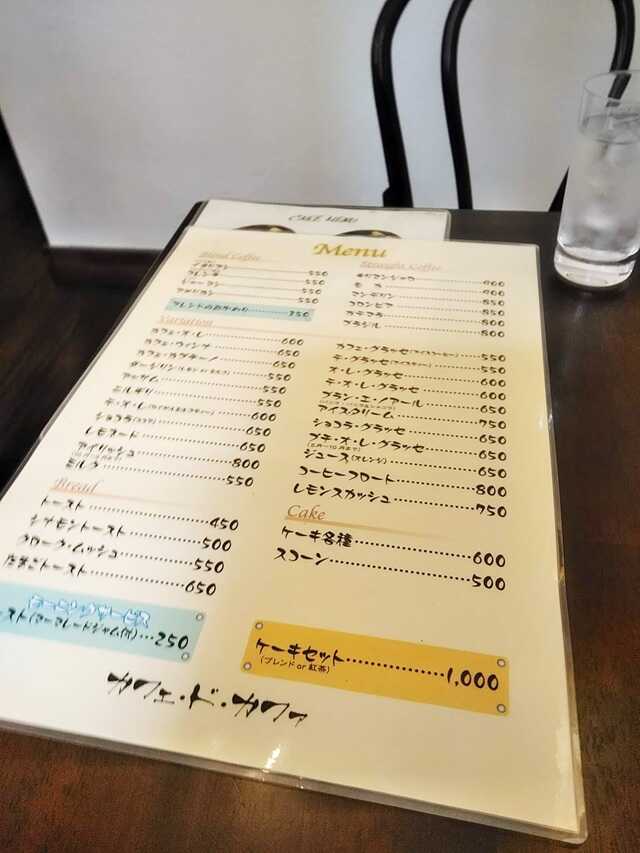 CAKE MENU
Menu
Blend Coffee
550
ブレンド 550
ジャーマン 550
アメリカン 550
ブレンドのおかわり 350
Variation
カフェ・オ・レ 600
カフェ・ウィンナ 650
カフェ・カプチーノ 650
ダージリン 550
アッサム 550
ニルギリ 550
テ・オ・レ 600
ショコラ(ココア) 650
レモネード 650
アイリッシュ 800
ミルク 550
Bread
トースト 450
シナモントースト 500
クローク・ムッシュ 550
たまごトースト 650
モーニングサービス
スト(マーマレードジャム付) 250
Straight Coffee
キリマンジャロ
モカ
マンデリン 850
コロンビア 850
ガテマラ 800
ブラジル 800
カフェ・グラッセ(アイスコーヒー) 550
テ・グラッセ(アイスティー) 550
オ・レ・グラッセ 600
テ・オ・レ・グラッセ 600
ブラン・エ・ノアール 650
アイスクリーム 750
ショコラ・グラッセ 650
プチ・オ・レ・グラッセ 650
(5月〜10月まで)
ジュース(オレンジ) 650
コーヒーフロート 800
レモンスカッシュ 750
Cake
ケーキ各種 600
スコーン 500
ケーキセット 1,000
(ブレンド or 紅茶)
カフェ・ド・カファ